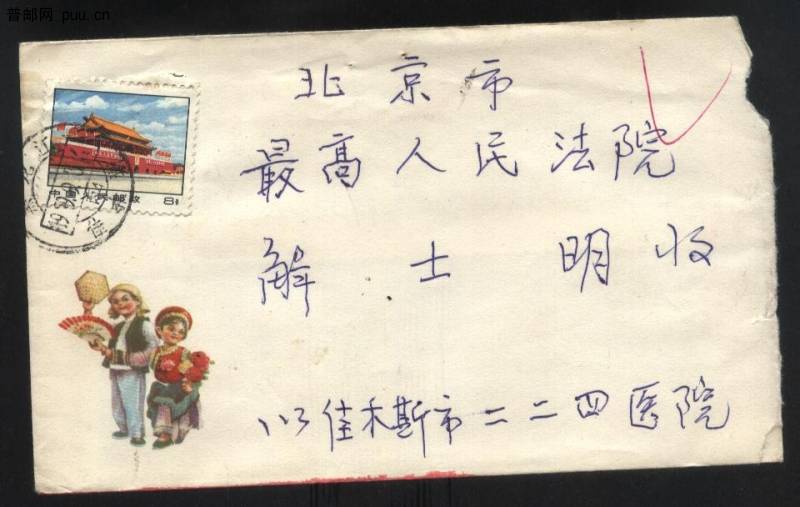 普邮网 puu.cn
北京市
中国人民邮政 8分
最高人民法院
解士明收
佳木斯市二二四医院